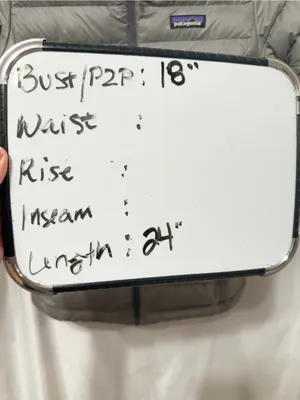 patagonia
Bust/P2P: 18"
Waist :
Rise :
Inseam :
Length : 24"